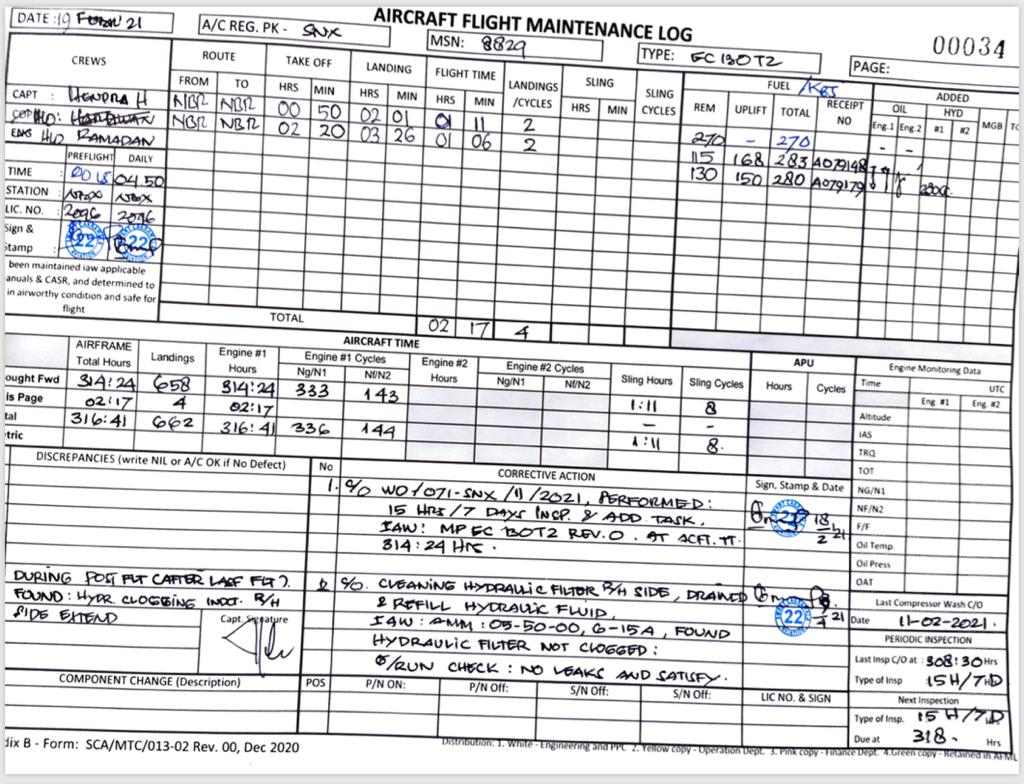 AIRCRAFT FLIGHT MAINTENANCE LOG
DATE: 19 21
A/C REG. PK - SNX
MSN: 8829
TYPE: EC 130T2
00034
PAGE:
CREWS
ROUTE
TAKE OFF
LANDING
FLIGHT TIME
LANDINGS /CYCLES
SLING
SLING CYCLES
FUEL /KGS
ADDED
FROM TO HRS MIN HRS MIN HRS MIN HRS MIN REM UPLIFT TOTAL RECEIPT NO OIL HYD MGB
Eng.1 Eng.2 #1 #2
CAPT : HENDRA H NBR NBR 00 50 02 01 01 11 2 270 - 270 - -
NBR NBR 02 20 03 26 01 06 2 115 168 283 A079148
HLO RAMADAN 130 150 280 A079179
PREFLIGHT DAILY
TIME : 04.50
STATION : NBX NBX
LIC. NO. : 2096 2096
Sign & Stamp : 22 22
been maintained iaw applicable
anuals & CASR, and determined to
in airworthy condition and safe for
flight
TOTAL 02 17 4
AIRCRAFT TIME
AIRFRAME Total Hours
Landings
Engine #1 Hours
Engine #1 Cycles
Ng/N1 Nf/N2
Engine #2 Hours
Engine #2 Cycles
Ng/N1 Nf/N2
Sling Hours
Sling Cycles
APU
Hours Cycles
Engine Monitoring Data
Time UTC
Eng. #1 Eng. #2
ought Fwd 314:24 658 314:24 333 143 1:11 8
is Page 02:17 4 02:17 - -
tal 316:41 662 316:41 336 144 1:11 8
tric
Altitude
IAS
TRQ
TOT
NG/N1
NF/N2
F/F
Oil Temp.
Oil Press
OAT
DISCREPANCIES (write NIL or A/C OK if No Defect)
No
CORRECTIVE ACTION
Sign, Stamp & Date
1. C/O WO/071-SNX/11/2021, PERFORMED:
15 HRS/7 DAYS INSP. & ADD. TASK.
IAW: MP EC 130T2 REV.0. AT ACFT.TT.
314:24 HRS.
22
18/2 21
DURING POST FLT (AFTER LAST FLT).
FOUND: HYDR CLOGGING INDCT. R/H
SIDE EXTEND
Capt. Signature
2 C/O. CLEANING HYDRAULIC FILTER R/H SIDE, DRAINED
& REFILL HYDRAULIC FLUID,
IAW: AMM: 05-50-00, 6-15A, FOUND
HYDRAULIC FILTER NOT CLOGGED:
G/RUN CHECK: NO LEAKS AND SATISFY.
22
Last Compressor Wash C/O
Date 11-02-2021.
PERIODIC INSPECTION
Last Insp C/O at : 308:30 Hrs
Type of Insp 15H/7D
Next Inspection
Type of Insp. 15H/7D
Due at 318.- Hrs
COMPONENT CHANGE (Description)
POS
P/N ON:
P/N Off:
S/N Off:
S/N Off:
LIC NO. & SIGN
dix B - Form: SCA/MTC/013-02 Rev. 00, Dec 2020
Distribution: 1. White - Engineering and PPC 2. Yellow copy - Operation Dept. 3. Pink copy - Finance Dept. 4.Green copy - Retained in AFML